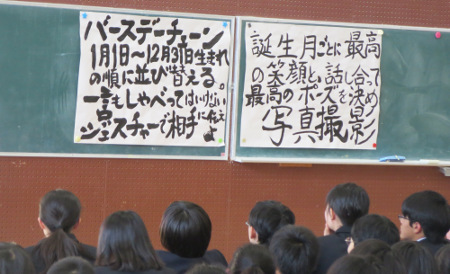 バースデーチェーン
1月1日～12月31日生まれ
の順に並び替える。
一言もしゃべってはいけない
ジェスチャーで相手に伝えよ
誕生月ごとに最高
の笑顔と、話し合って
最高のポーズを決め
写真撮影